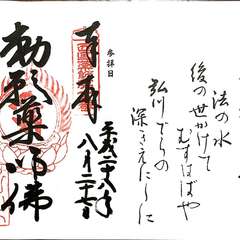 法の水
後の世かけて
むすばばや
弘川でらの
深きえにしに
参拝日
奉拝
平成二十八年
八月二十七日
勅願薬師佛